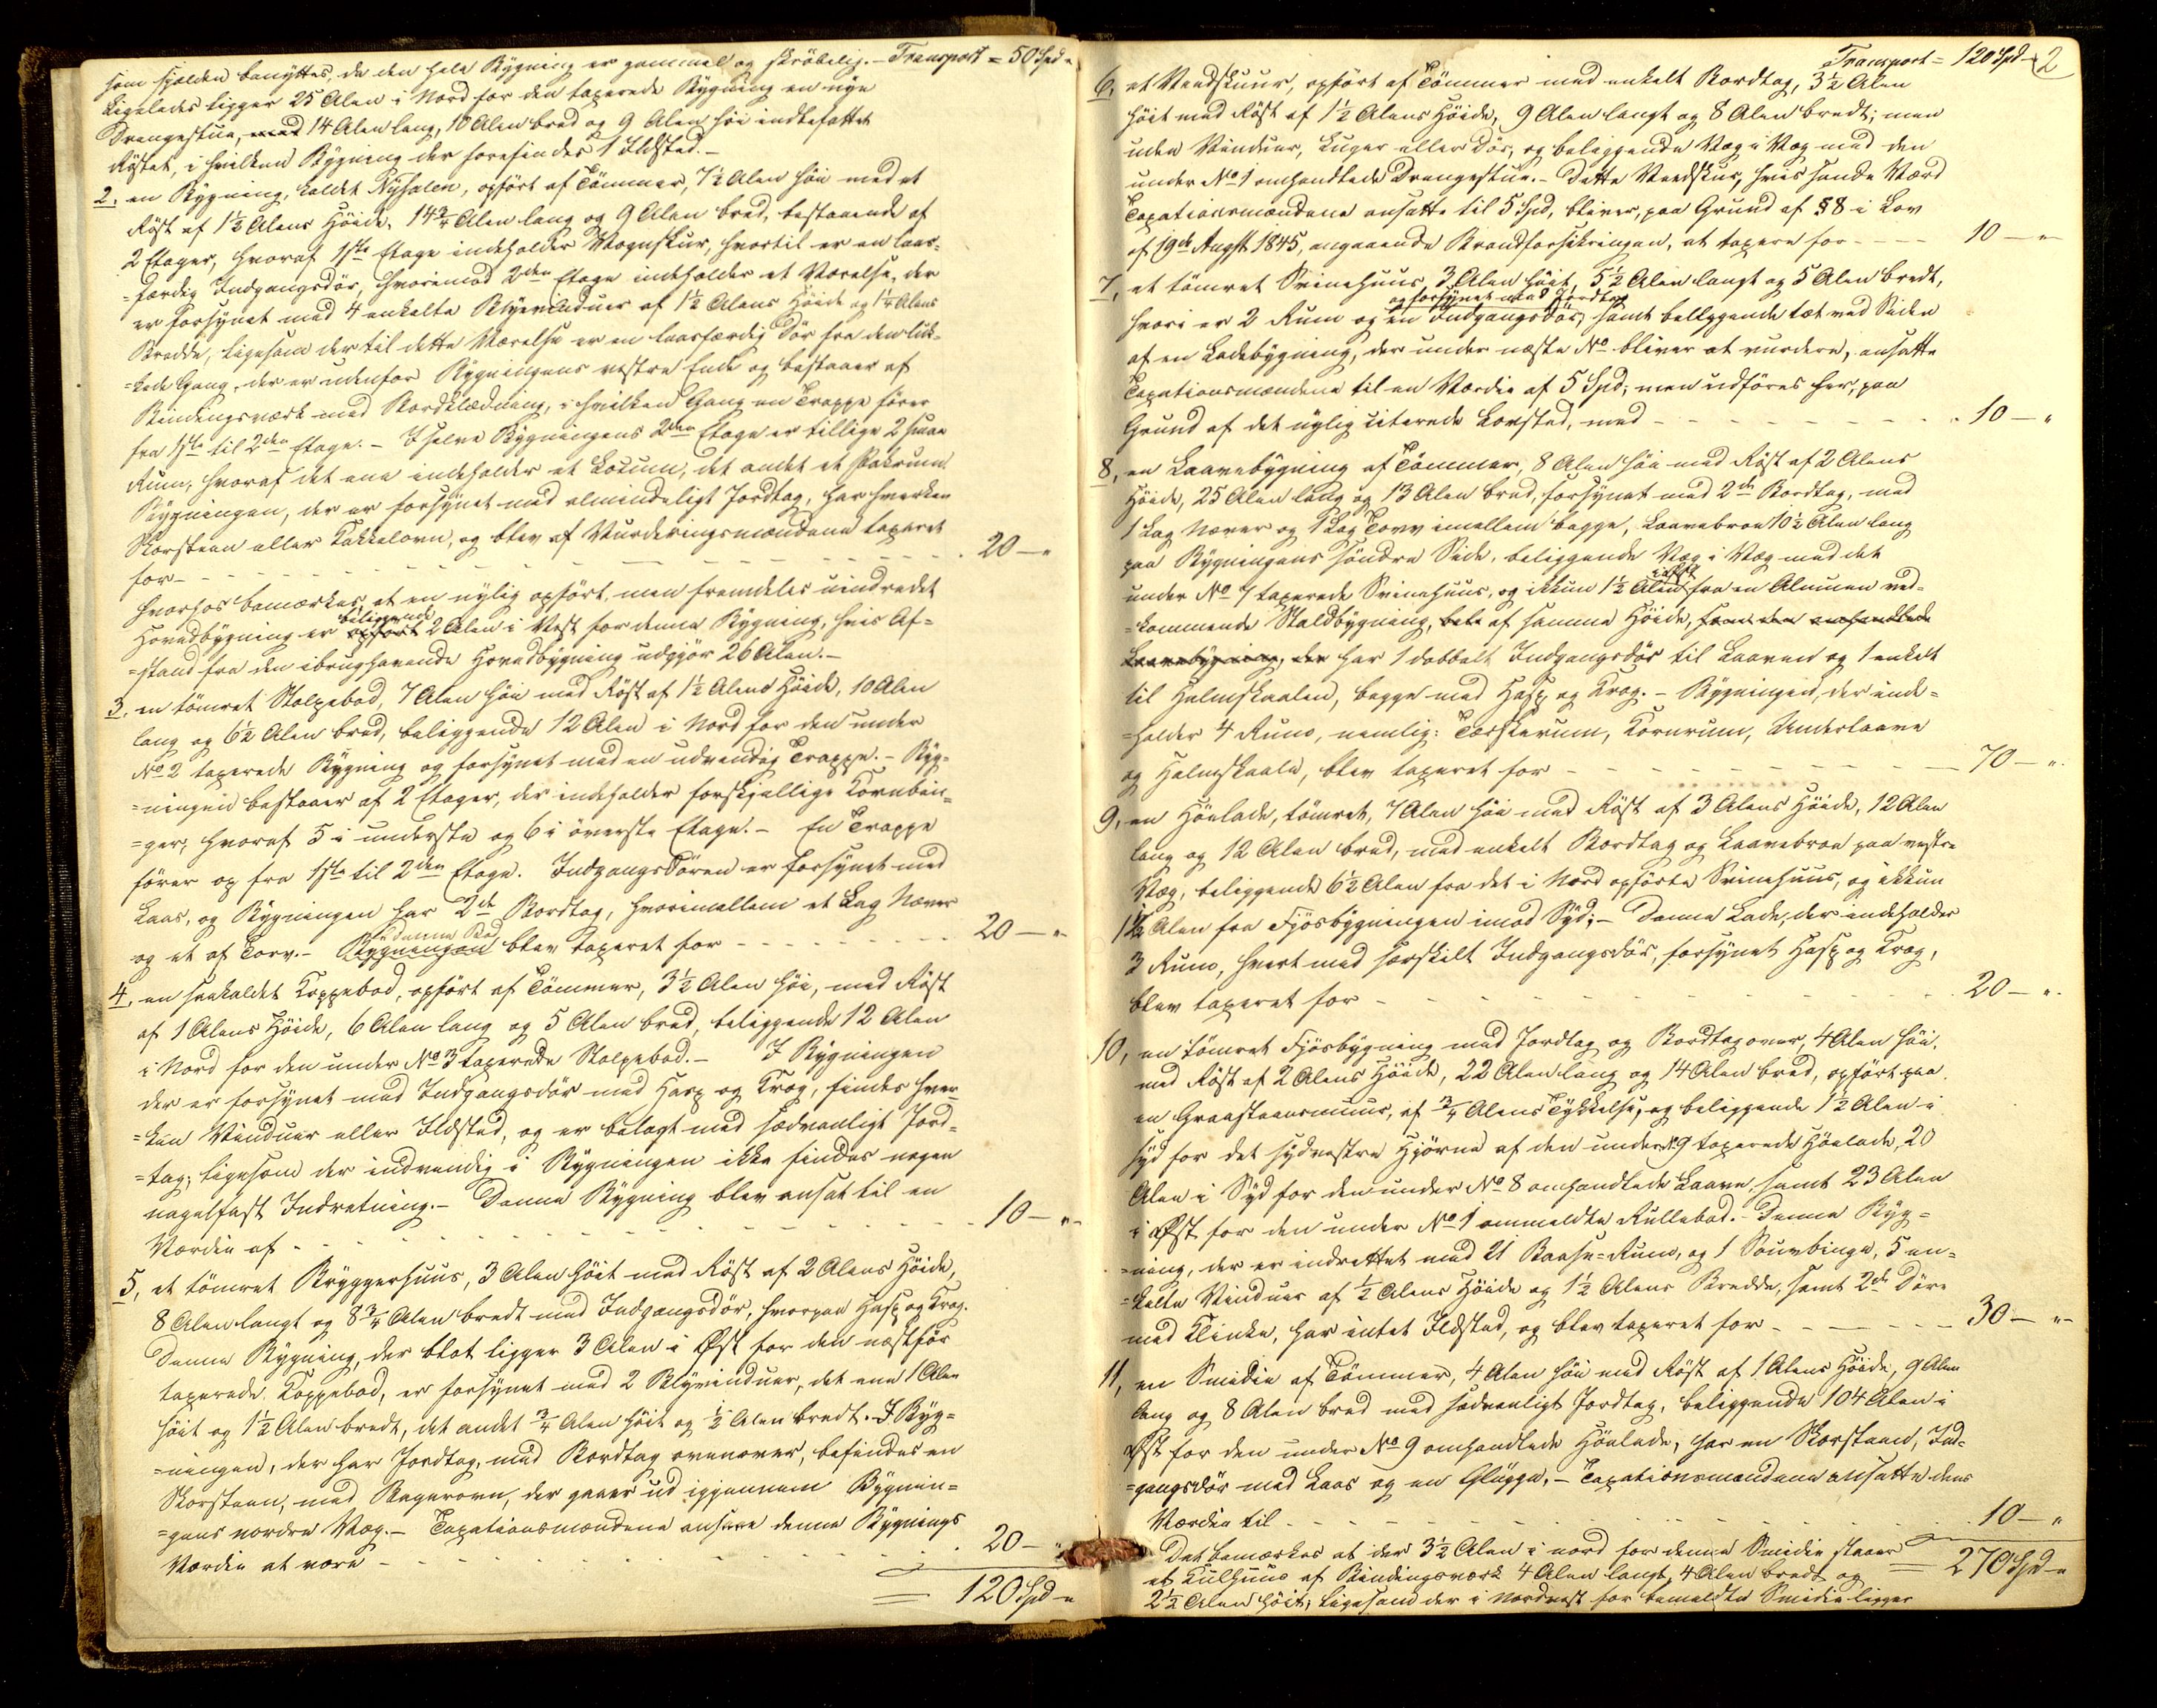 som sjelden benyttes, da den hele Bygning er gammel og skröbelig. – Transport = 50 Spd "
Ligeledes ligger 25 Alen i Nord for den taxerede Bygning en nye
Drengestue, med 14 Alen lang, 10 Alen bred og 9 Alen höi indbefattet
Röstet, i hvilken Bygning der forefindes 1 Ildsted. –
2, en Bygning, kaldet Nysalen, opfört af Tömmer, 7½ Alen höi med et
Röst af 1½ Alens Höide, 14¾ Alen lang og 9 Alen bred, bestaaende af
2 Etager, hvoraf 1ste Etage indeholder Vognskur, hvortil er en laas-
=færdig Indgangsdör, hvorimod 2den Etage indeholder et Værelse, der
er forsynet med 4 enkelte Blyvinduer af 1½ Alens Höide og 1¼ Alens
Bredde, ligesom der til dette Værelse er en laasfærdig Dör fra den luk-
=kede Gang, der er udenfor Bygningens vestre Ende og bestaaer af
Bindingsværk med Bordklædning, i hvilken Gang en Trappe förer
fra 1ste til 2den Etage. – I selve Bygningens 2den Etage er tillige 2 smaa
Rum, hvoraf det ene indeholder et Locum, det andet et Pakrum.
Bygningen, der er forsynet med almindeligt Jordtag, har hverken
Skorsteen eller Kakkelovn, og blev af Vurderingsmændene taxeret
for – – – – 20 – "
hvorhos bemærkes, at en nylig opfört, men fremdeles uindredet
Hovedbygning er opfört beliggende 2 Alen i Vest for denne Bygning, hvis Af-
=stand fra den ibrughavende Hovedbygning udgjör 26 Alen. –
3, en tömret Stolpebod, 7 Alen höi med Röst af 1½ Alens Höide, 10 Alen
lang og 6½ Alen bred, beliggende 12 Alen i Nord for den under
No 2 taxerede Bygning og forsynet med en udvendig Trappe. – Byg-
=ningen bestaaer af 2 Etager, der indeholder forskjellige Kornbin-
=ger, hvoraf 5 i underste og 6 i överste Etage. – En Trappe
förer op fra 1ste til 2den Etage. Indgangsdören er forsynet med
Laas, og Bygningen har 2de Bordtag, hvorimellem et Lag Næver
og et af Torv. – Bygningen denne Bod blev taxeret for – – – – 20 – "
4, en saakaldet Koppebod, opfört af Tömmer, 3½ Alen höi, med Röst
af 1 Alens Höide, 6 Alen lang og 5 Alen bred, beliggende 12 Alen
i Nord for den under No 3 taxerede Stolpebod. – I Bygningen
der er forsynet med Indgangsdör med Hasp og Krog, findes hver-
=ken Vinduer eller Ildsted, og er belagt med sædvanligt Jord-
=tag; ligesom der indvendig i Bygningen ikke findes nogen
nagelfast Indretning. – Denne Bygning blev ansat til en
Værdie af – – – – 10 – "
5, et tömret Bryggerhuus, 3 Alen höit med Röst af 2 Alens Höide,
8 Alen langt og 8¾ Alen bredt med Indgangsdör, hvorpaa Hasp og Krog.
Denne Bygning, der blot ligger 3 Alen i Öst for den næstför
taxerede Koppebod, er forsynet med 2 Blyvinduer, det ene 1 Alen
höit og 1½ Alen bredt, det andet ¾ Alen höit og ½ Alen bredt. I Byg-
=ningen, der har Jordtag, med Bordtag ovenover, befindes en
Skorsteen, med Bagerovn, der gaaer ud igjennem Bygnin-
=gens nordre Væg. – Taxationsmændene ansaae denne Bygnings
Værdie at være – – – – 20 – "
= 120 Spd – "
Transport = 120 Spd – 2
6, et Vedskuur, opfört af Tömmer med enkelt Bordtag, 3½ Alen
höit med Röst af 1½ Alens Höide, 9 Alen langt og 8 Alen bredt; men
uden Vinduer, Luger eller Dör, og beliggende Væg i Væg med den
under No 1 omhandlede Drengestue. – Dette Vedskur, hvis sande Værd
Taxationsmændene ansatte til 5 Spd, bliver, paa Grund af § 8 i Lov
af 19de Augst 1845, angaaende Brandforsikringen, at taxere for – – – 10 – "
7, et tömret Svinehuus, 3 Alen höit, 5½ Alen langt og 5 Alen bredt,
og forsynet med Jordtag
hvori er 2 Rum og en Indgangsdör, samt beliggende tæt ved Siden
af en Ladebygning, der under næste No bliver at vurdere, ansatte
Taxationsmændene til en Værdie af 5 Spd; men udföres her, paa
Grund af det nylig citerede Lovsted, med – – – – 10 – "
8, en Laavebygning af Tömmer, 8 Alen höi med Röst af 2 Alens
Höide, 25 Alen lang og 13 Alen bred, forsynet med 2de Bordtag, med
1 Lag Næver og 1 Lag Torv imellem begge, Laavebroe 10½ Alen lang
paa Bygningens söndre Side, beliggende Væg i Væg med det
under No 7 taxerede Svinehuus, og ikkun 1½ Alen i Öst fra en Almuen ved-
=kommende Staldbygning, af samme Höide, som den omhandlede
Laavebygning, der har 1 dobbelt Indgangsdör til Laaven og 1 enkelt
til Halmskaalen, begge med Hasp og Krog. – Bygningen, der inde-
=holder 4 Rum, nemlig: Tærskerum, Kornrum, Underlaave
og Halmskaale, blev taxeret for – – – – 70 – "
9, en Höelade, tömret, 7 Alen höi med Röst af 3 Alens Höide, 12 Alen
lang og 12 Alen bred, med enkelt Bordtag og Laavebroe paa vestre
Væg, beliggende 6½ Alen fra det i Nord opförte Svinehuus, og ikkun
1½ Alen fra Fjösbygningen imod Syd; – Denne Lade, der indeholder
3 Rum, hvert med særskilt Indgangsdör, forsynet Hasp og Krog,
blev taxeret for – – – – 20 – "
10, en tömret Fjösbygning med Jordtag og Bordtag over, 4 Alen höi,
med Röst af 2 Alens Höide, 22 Alen lang og 14 Alen bred, opfört paa
en Graasteensmuur, af ¾ Alens Tykkelse, og beliggende 1½ Alen i
Syd for det sydvestre Hjörne af den under No 9 taxerede Höelade, 20
Alen i Syd for den under No 8 omhandlede Laave, samt 23 Alen
i Öst for den under No 1 ommeldte Rullebod. – Denne Byg-
=ning, der er indrettet med 21 Baase-Rum, og 1 Souvbinge, 5 en-
=kelte Vinduer af ½ Alens Höide og 1½ Alens Bredde, samt 2de Döre
med Klinke, har intet Ildsted, og blev taxeret for – – – – 30 – "
11, en Smidie af Tömmer, 4 Alen höi med Röst af 1 Alens Höide, 9 Alen
lang og 8 Alen bred med sædvanligt Jordtag, beliggende 104 Alen i
Öst for den under No 9 omhandlede Höelade, har en Skorsteen, Ind-
=gangsdör med Laas og en Glugge. – Taxationsmændene ansatte dens
Værdie til – – – – 10 – "
Det bemærkes at der 3½ Alen i nord for denne Smidie staaer
et Kulhuus af Bindingsværk 4 Alen langt, 4 Alen bredt og = 270 Spd – "
2½ Alen höit; ligesom der i Nordvest for bemeldte Smidie ligger